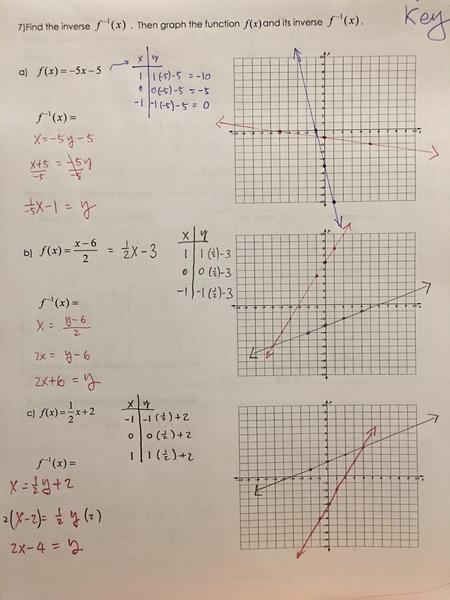 Key
7)Find the inverse f⁻¹(x) . Then graph the function f(x) and its inverse f⁻¹(x).
a) f(x) = -5x - 5
x | y
1 | 1(-5)-5 = -10
0 | 0(-5)-5 = -5
-1 | -1(-5)-5 = 0
f⁻¹(x) =
x = -5y - 5
x+5/-5 = -5y/-5
1/-5 x - 1 = y
b) f(x) = x-6/2 = 1/2 x - 3
x | y
1 | 1(1/2)-3
0 | 0(1/2)-3
-1 | -1(1/2)-3
f⁻¹(x) =
x = y-6/2
2x = y-6
2x+6 = y
c) f(x) = 1/2 x + 2
x | y
-1 | -1(1/2)+2
0 | 0(1/2)+2
1 | 1(1/2)+2
f⁻¹(x) =
x = 1/2 y + 2
2(x-2) = 1/2 y (2)
2x-4 = y